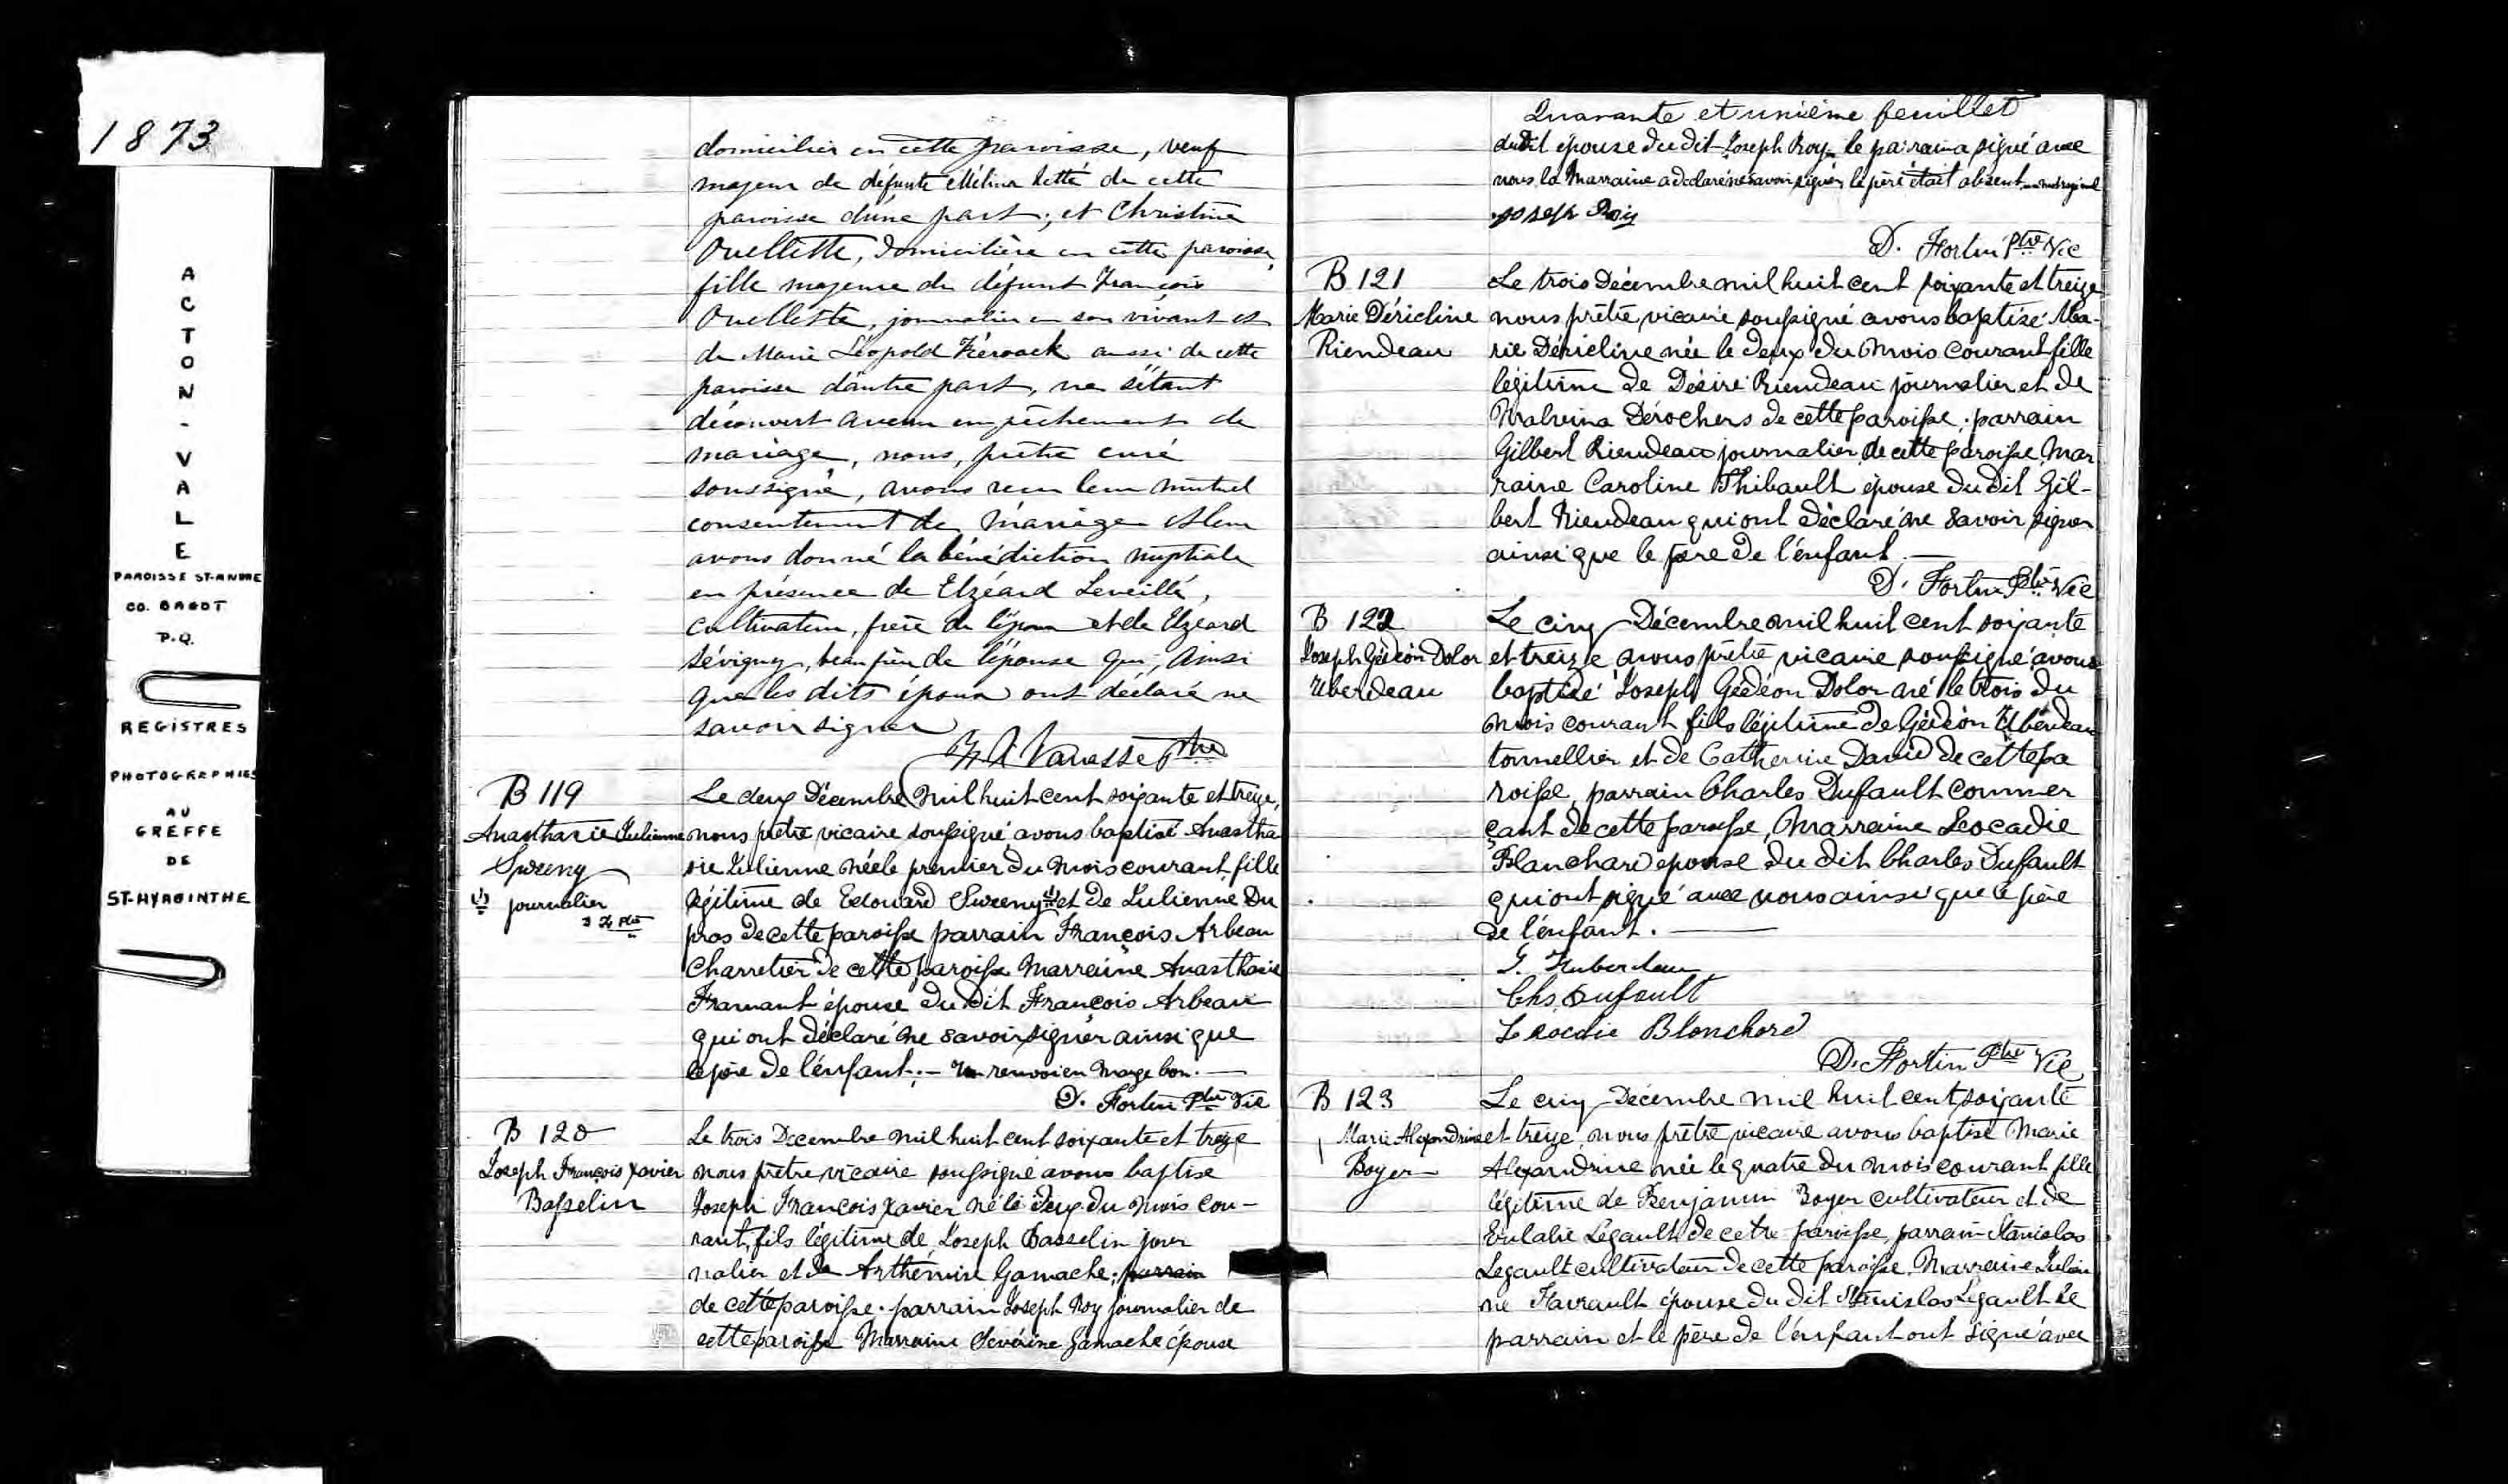 1873
ACTON-VALE
PAROISSE ST-ANDRE
CO. BAGOT
P.Q.
REGISTRES
PHOTOGRAPHIES
AU
GREFFE
DE
ST-HYACINTHE
domicilier en cette paroisse, veuf
majeur de défunte Mélina Letté de cette
paroisse d'une part; et Christine
Ouellette, domicilière en cette paroisse,
fille majeure de défunt François
Ouellette, journalier en son vivant et
de Marie Léopold Kérouack aussi de cette
paroisse d'autre part, ne s'étant
découvert aucun empêchement de
mariage, nous, prêtre curé
soussigné, avons reçu leur mutuel
consentement de mariage et leur
avons donné la bénédiction nuptiale
en présence de Elzéard Leveillé,
cultivateur, frère de l'époux et de Elzeard
Sévigny, beau frère de l'épouse qui, ainsi
que les dits époux ont déclaré ne
savoir signer
Vanasse Ptre
B 119
Anasthasie Julienne
Sweeny
journalier
Le deux Décembre mil huit cent soixante et treize,
nous prêtre vicaire soussigné avons baptisé Anastha
sie Julienne née le premier du mois courant, fille
légitime de Edouard Sweeny et de Julienne Du
pras de cette paroisse parrain François Arbeau
Charretier de cette paroisse Marraine Anasthasie
épouse du dit François Arbeau
qui ont déclaré ne savoir signer ainsi que
le père de l'enfant.— Un renvoi en marge bon.—
D. Fortin Ptre Vic
B 120
Joseph François Xavier
Basselin
Le trois Decembre mil huit cent soixante et treize
nous prêtre vicaire soussigné avons baptisé
Joseph François Xavier né le deux du mois cou-
rant, fils légitime de Joseph Basselin jour
nalier et de Arthémise Gamache; parrain
de cette paroisse. parrain Joseph Roy journalier de
cette paroisse Marraine Sévérine Gamache épouse
Quarante et unième feuillet
dudit épouse du dit Joseph Roy le parrain a signé avec
nous la Marraine a déclaré ne savoir signer, le père était absent
Joseph Roy
D. Fortin Ptre Vic
B 121
Marie Déricline
Riendeau
Le trois Décembre mil huit cent soixante et treize
nous prêtre vicaire soussigné avons baptisé Ma-
rie Déricline née le deux du mois courant fille
légitime de Désiré Riendeau journalier et de
Malvina Dérochers de cette paroisse; parrain
Gilbert Riendeau journalier de cette paroisse, Mar
raine Caroline Thibault épouse du dit Gil-
bert Riendeau qui ont déclaré ne savoir signer
ainsi que le père de l'enfant.—
D. Fortin Ptre Vic
B 122
Joseph Gédéon Dolor
Uberdeau
Le cinq Décembre mil huit cent soixante
et treize nous prêtre vicaire soussigné avons
baptisé Joseph Gédéon Dolor né le trois du
mois courant, fils légitime de Gédéon Uberdeau
tonnellier et de Catherine David de cette pa
roisse, parrain Charles Dufault commer
çant de cette paroisse, Marraine Leocadie
Blanchard épouse du dit Charles Dufault
qui ont signé avec nous ainsi que le père
de l'enfant.—
G. Huberdeau
Chs Dufault
Leocadie Blanchard
D. Fortin Ptre Vic
B 123
Marie Alexandrine
Boyer
Le cinq Décembre mil huit cent soixante
et treize, nous prêtre vicaire avons baptisé Marie
Alexandrine née le quatre du mois courant fille
légitime de Benjamin Boyer cultivateur et de
Eulalie Légault de cette paroisse, parrain Stanislas
Legault cultivateur de cette paroisse. Marraine Julien
ne épouse du dit Stanislas Legault Le
parrain et le père de l'enfant ont signé avec